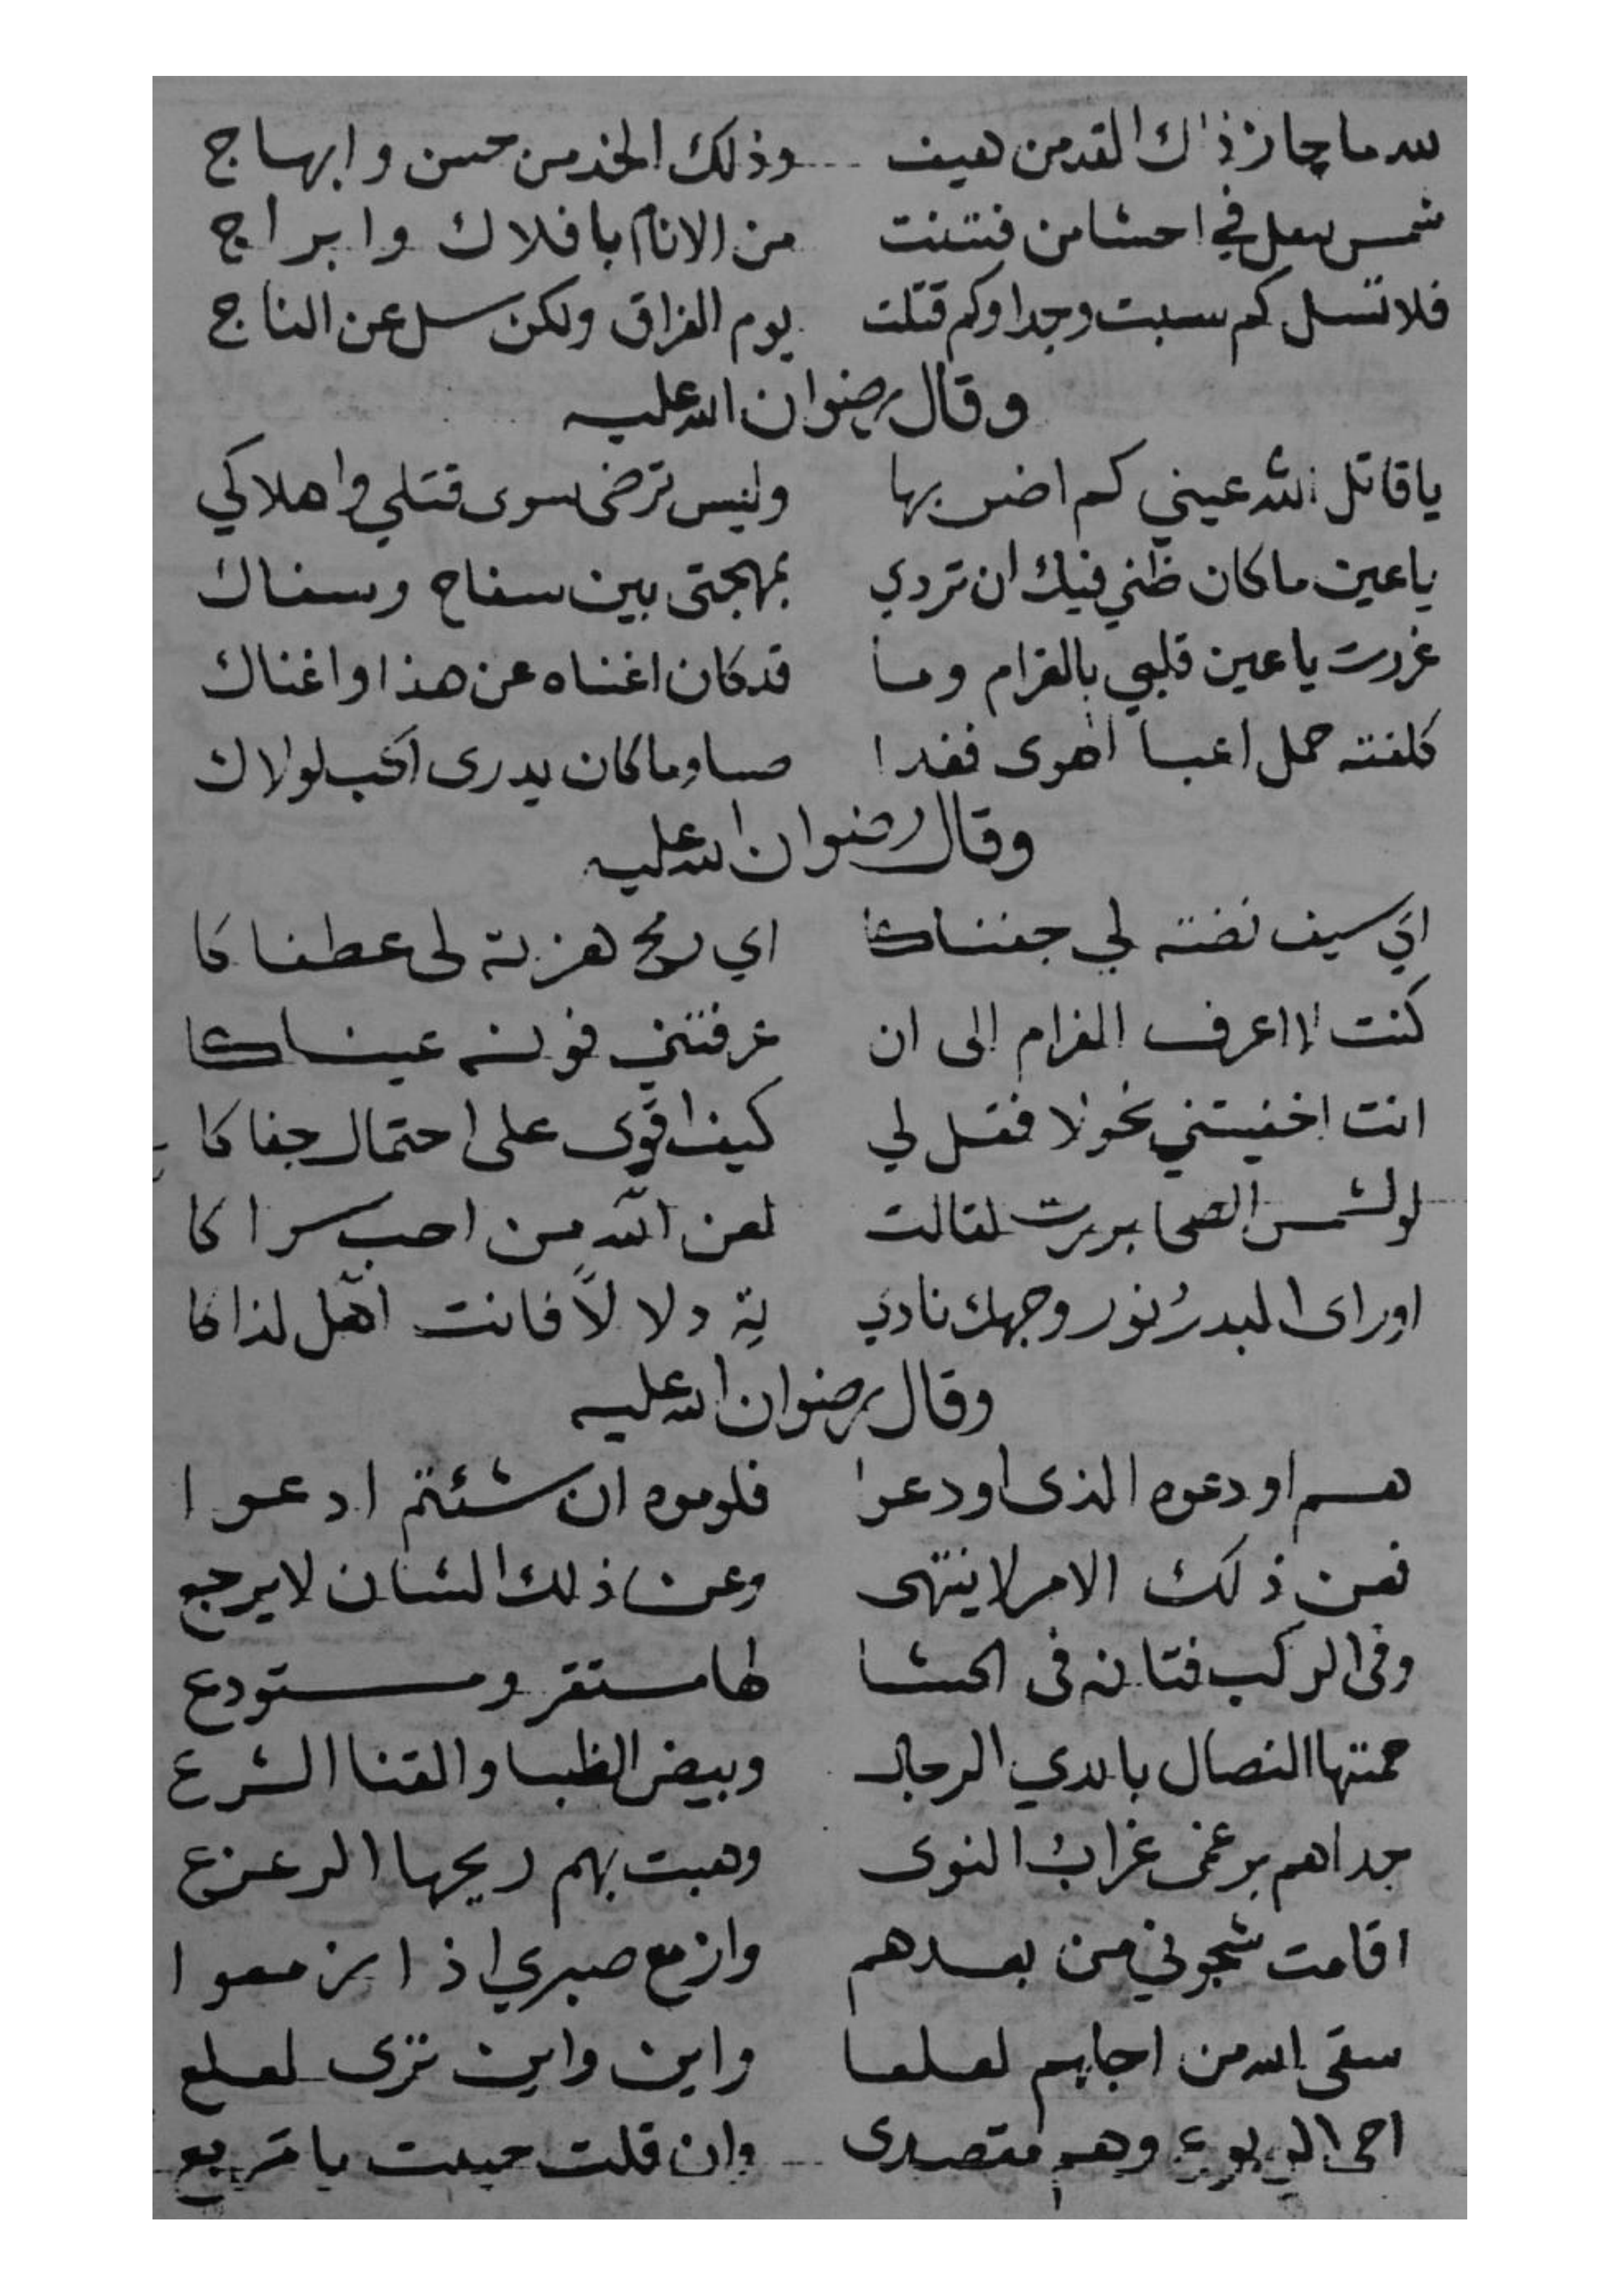 لله ما حاز ذاك القد من هيف وذلك الخد من حسن وابهاج
شمس في احشا من فتنت من الانام بافلاك وابراج
فلا تسل كم سبت وجدا وكم قتلت يوم الفراق ولكن سل عن الناج
وقال رضوان الله عليه
يا قاتل الله عيني كم اضر بها وليس ترضى سوى قتلي واهلاكي
يا عين ما كان ظني فيك ان تردي بمهجتى بين سفاح وسفاك
غررت يا عين قلبي بالغرام وما قد كان اغناه عن هذا واغناك
كلفته حمل اعبا الهوى فغدا صبا وما كان يدرى الحب لولاك
وقال رضوان الله عليه
اي سيف نضته لي جفناكا اي رمح هزته لى عطفاكا
كنت لا اعرف الغرام الى ان عرفتني فنونه عيناكا
انت اخفيتني نحولا فقل لي كيف اقوى على احتمال جفاكا
لو لشمس الضحا برزت لقالت لعن الله من احب سواكا
او راى البدر نور وجهك نادى ته دلالاً فانت اهل لذاكا
وقال رضوان الله عليه
هم اودعوه الذى اودعوا فلوموه ان شئتم ادعوا
فعن ذلك الامر لا ينتهى وعن ذلك الشان لا يرجع
وفى الركب فتانه فى الحشا لها مستقر ومستودع
حمتها النصال بايدي الرجال وبيض الظبا والقنا الشرع
حداهم برغمى غراب النوى وهبت بهم ريحها الزعزع
اقامت شجوني من بعدهم وازمع صبري اذ ازمعوا
سقى الله من اجلهم لعلعا واين واين ترى لعلع
احى الربوع وهم مقصدى وان قلت حييت يا مربع